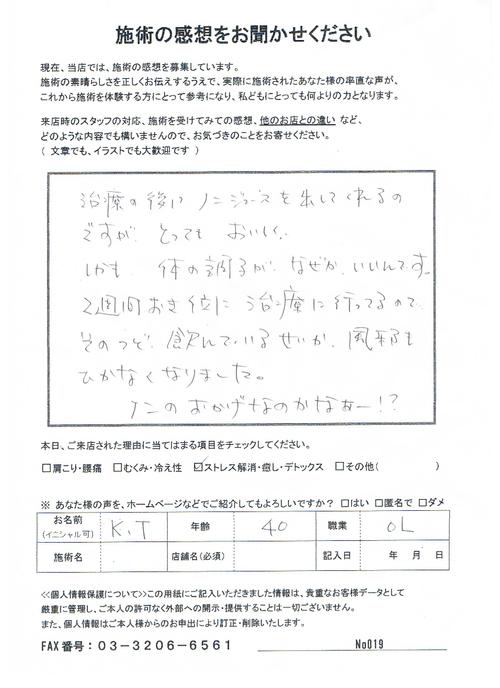 施術の感想をお聞かせください
現在、当店では、施術の感想を募集しています。
施術の素晴らしさを正しくお伝えするうえで、実際に施術されたあなた様の率直な声が、
これから施術を体験する方にとって参考になり、私どもにとっても何よりの力となります。
来店時のスタッフの対応、施術を受けてみての感想、他のお店との違い など、
どのような内容でも構いませんので、お気づきのことをお寄せください。
( 文章でも、イラストでも大歓迎です )
治療の後に ノニジュースを出してくれるの
ですが、とっても おいしい。
しかも 体の調子が、なぜか、いいんです。
2週間おき位に 治療に行ってるので
そのつど、飲んでいるせいか、風邪も
ひかなくなりました。
ノニのおかげなのかなぁー!?
本日、ご来店された理由に当てはまる項目をチェックしてください。
□肩こり・腰痛 □むくみ・冷え性 ☑ストレス解消・癒し・デトックス □その他( )
※ あなた様の声を、ホームページなどでご紹介してもよろしいですか? □はい □匿名で □ダメ
お名前 (イニシャル可) K.T 年齢 40 職業 OL
施術名 店舗名(必須) 記入日 年 月 日
<<個人情報保護について>>この用紙にご記入いただきました情報は、貴重なお客様データとして
厳重に管理し、ご本人の許可なく外部への開示・提供することは一切ございません。
また、個人情報はご本人様からのお申出により訂正・削除いたします。
FAX 番号：03-3206-6561 No019